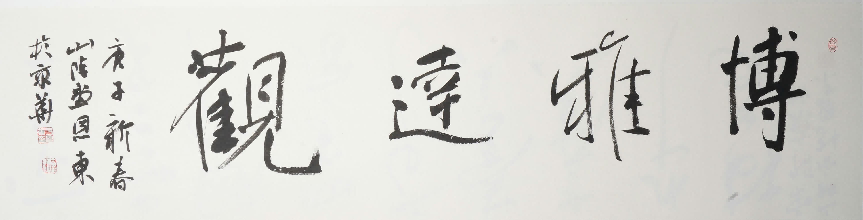 博雅達觀
庚子新春
山陰盡恩東
於京華